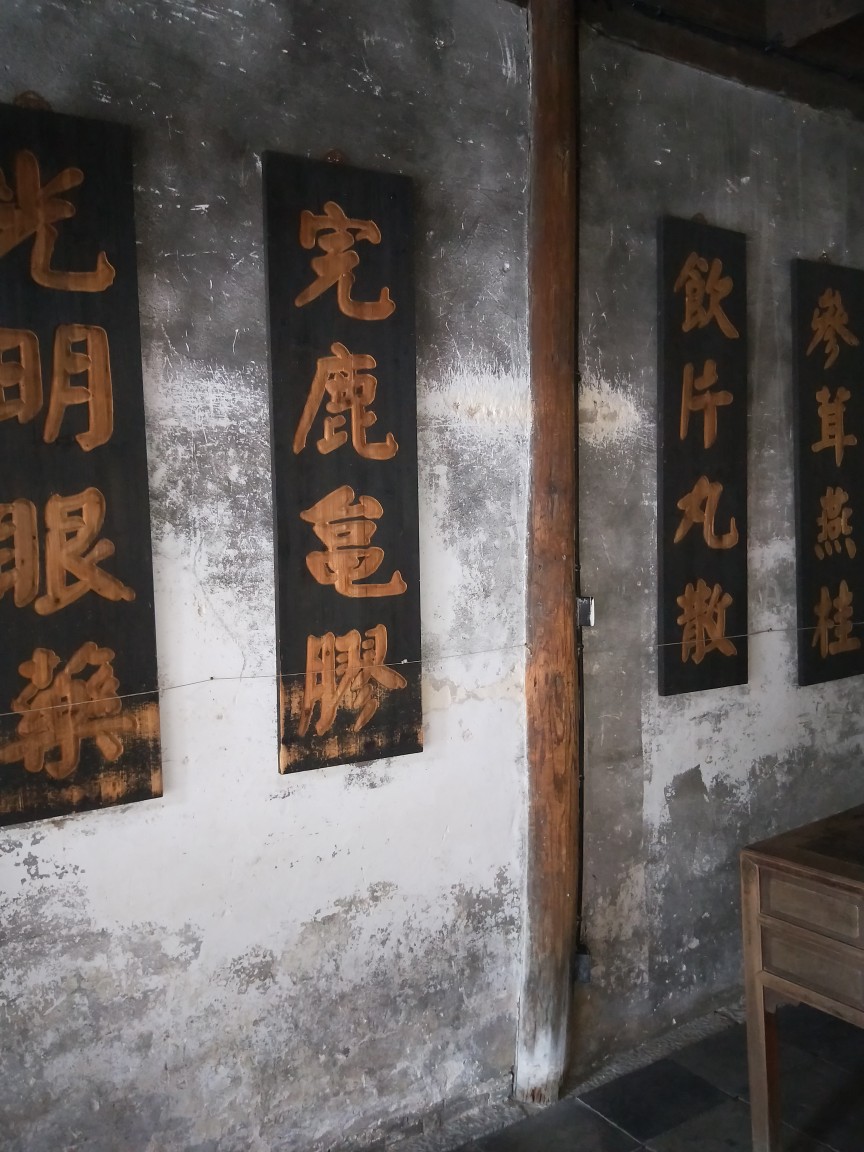 參茸燕桂
飲片丸散
虎鹿龜膠
光明眼藥